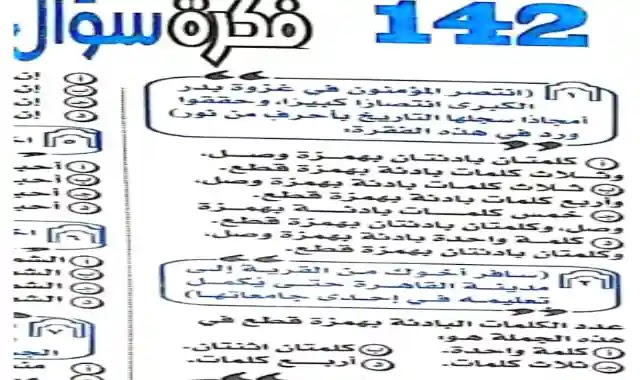 142 فكرة سؤال
١ (انتصر المؤمنون في غزوة بدر
الكبرى انتصارًا كبيرًا، وحققوا
أمجادًا سجلها التاريخ بأحرف من نور)
ورد في هذه الفقرة:
أ كلمتان بادئتان بهمزة وصل،
وثلاث كلمات بادئة بهمزة قطع.
ب ثلاث كلمات بادئة بهمزة وصل،
وأربع كلمات بادئة بهمزة قطع.
ج خمس كلمات بادئة بهمزة
وصل، وكلمتان بادئتان بهمزة قطع.
د كلمة واحدة بادئة بهمزة وصل،
وكلمتان بادئتان بهمزة قطع.
٢ (سافر أخوك من القرية إلى
مدينة القاهرة حتى يُكمل
تعليمه في إحدى جامعاتها)
عدد الكلمات البادئة بهمزة قطع في
هذه الجملة هو:
أ كلمة واحدة. ب كلمتان اثنتان.
ج ثلاث كلمات. د أربع كلمات.
أ
ب
ج
د
٥
أ
ب
ج
د
٦
أ الشم
ب الشم
ج الشم
د الشم
٧
أ